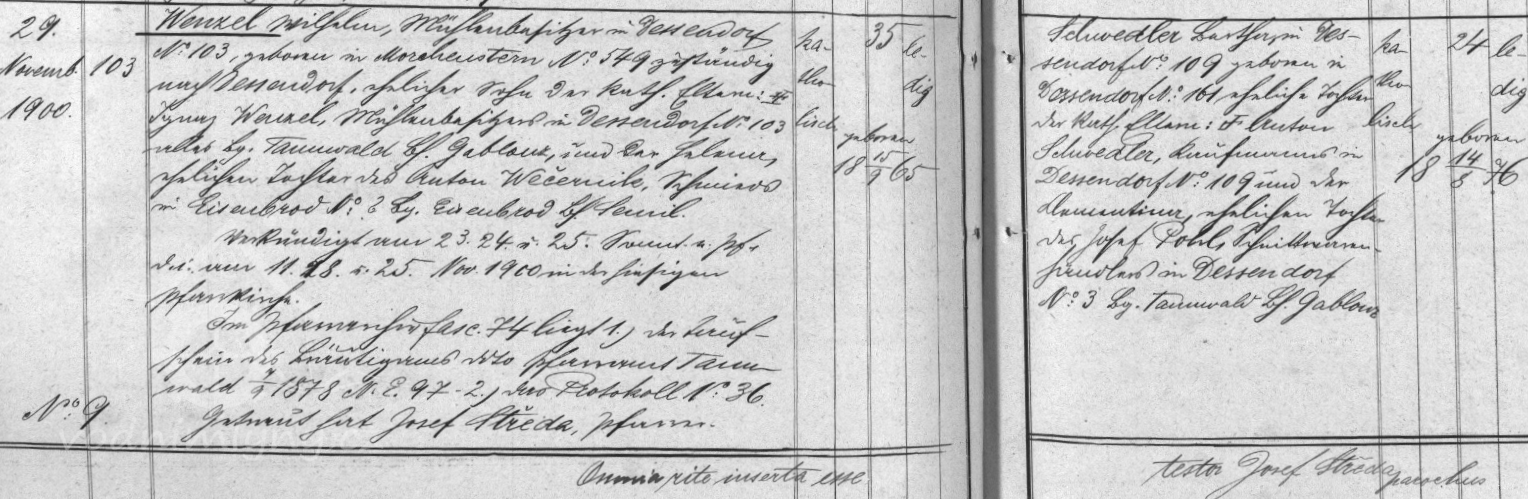 29.
Novemb.
1900.
103
Wenzel Wilhelm, Mühlenbesitzer in Dessendorf
No 103, geboren in Morchenstern No 549 zuständig
nach Dessendorf, ehelicher Sohn der kath. Eltern: †
Ignaz Wenzel, Mühlenbesitzers in Dessendorf No 103
alles Bz. Tannwald Bh. Gablonz, und der Helena,
ehelichen Tochter des Anton Večernik, Schmieds
in Eisenbrod No Bz. Eisenbrod Bh Semil.
Verkündigt am 23. 24. u. 25. Sonnt. n. Pf.
d. i. am 11. 18. u. 25. Nov. 1900 in der hiesigen
Pfarrkirche.
Im Pfarrarchiv fasc. 74 liegt 1.) der Tauf-
schein des Bräutigams ddto Pfarramt Tann-
wald 1878 N. E. 97 - 2.) das Protokoll No 36.
Getraut hat Josef Středa, Pfarrer.
No 9.
ka-
tho-
lisch
35
geboren
18 15/9 65
le-
dig
Schwedler Bertha, in Des-
sendorf No 109 geboren in
Dessendorf No 161 eheliche Tochter
der kath. Eltern: † Anton
Schwedler, Kaufmanns in
Dessendorf No 109 und der
Clementina, ehelichen Tochter
des Josef Schnittwaren-
händlers in Dessendorf
No 3 Bz. Tannwald Bh. Gablonz
ka-
tho-
lisch
24
geboren
18 14/8 76
le-
dig
Omnia rite inserta esse
testor Josef Středa parochus